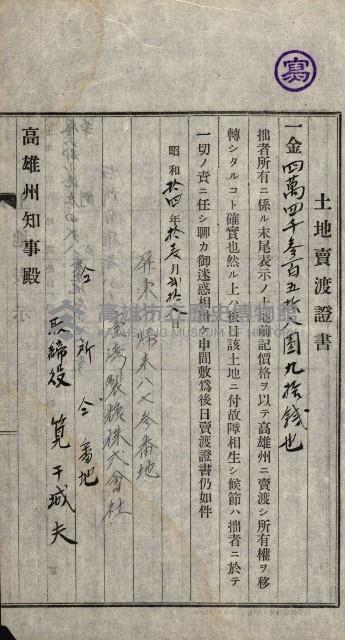 寫
土地賣渡證書
一金四萬四千參百五拾八圓九拾錢也
拙者所有ニ係ル末尾表示ノ土地前記價格ヲ以テ高雄州ニ賣渡シ所有權ヲ移
轉シタルコト確實也然ル上ハ後日該土地ニ付故障相生シ候節ハ拙者ニ於テ
一切ノ責ニ任シ聊カ御迷惑相掛ケ申間敷爲後日賣渡證書仍如件
昭和拾四年拾貳月貳拾八日
屏東市歸來八七參番地
臺灣製糖株式會社
仝所仝番地
取締役 筧干城夫
高雄州知事殿
高雄市立歷史博物館